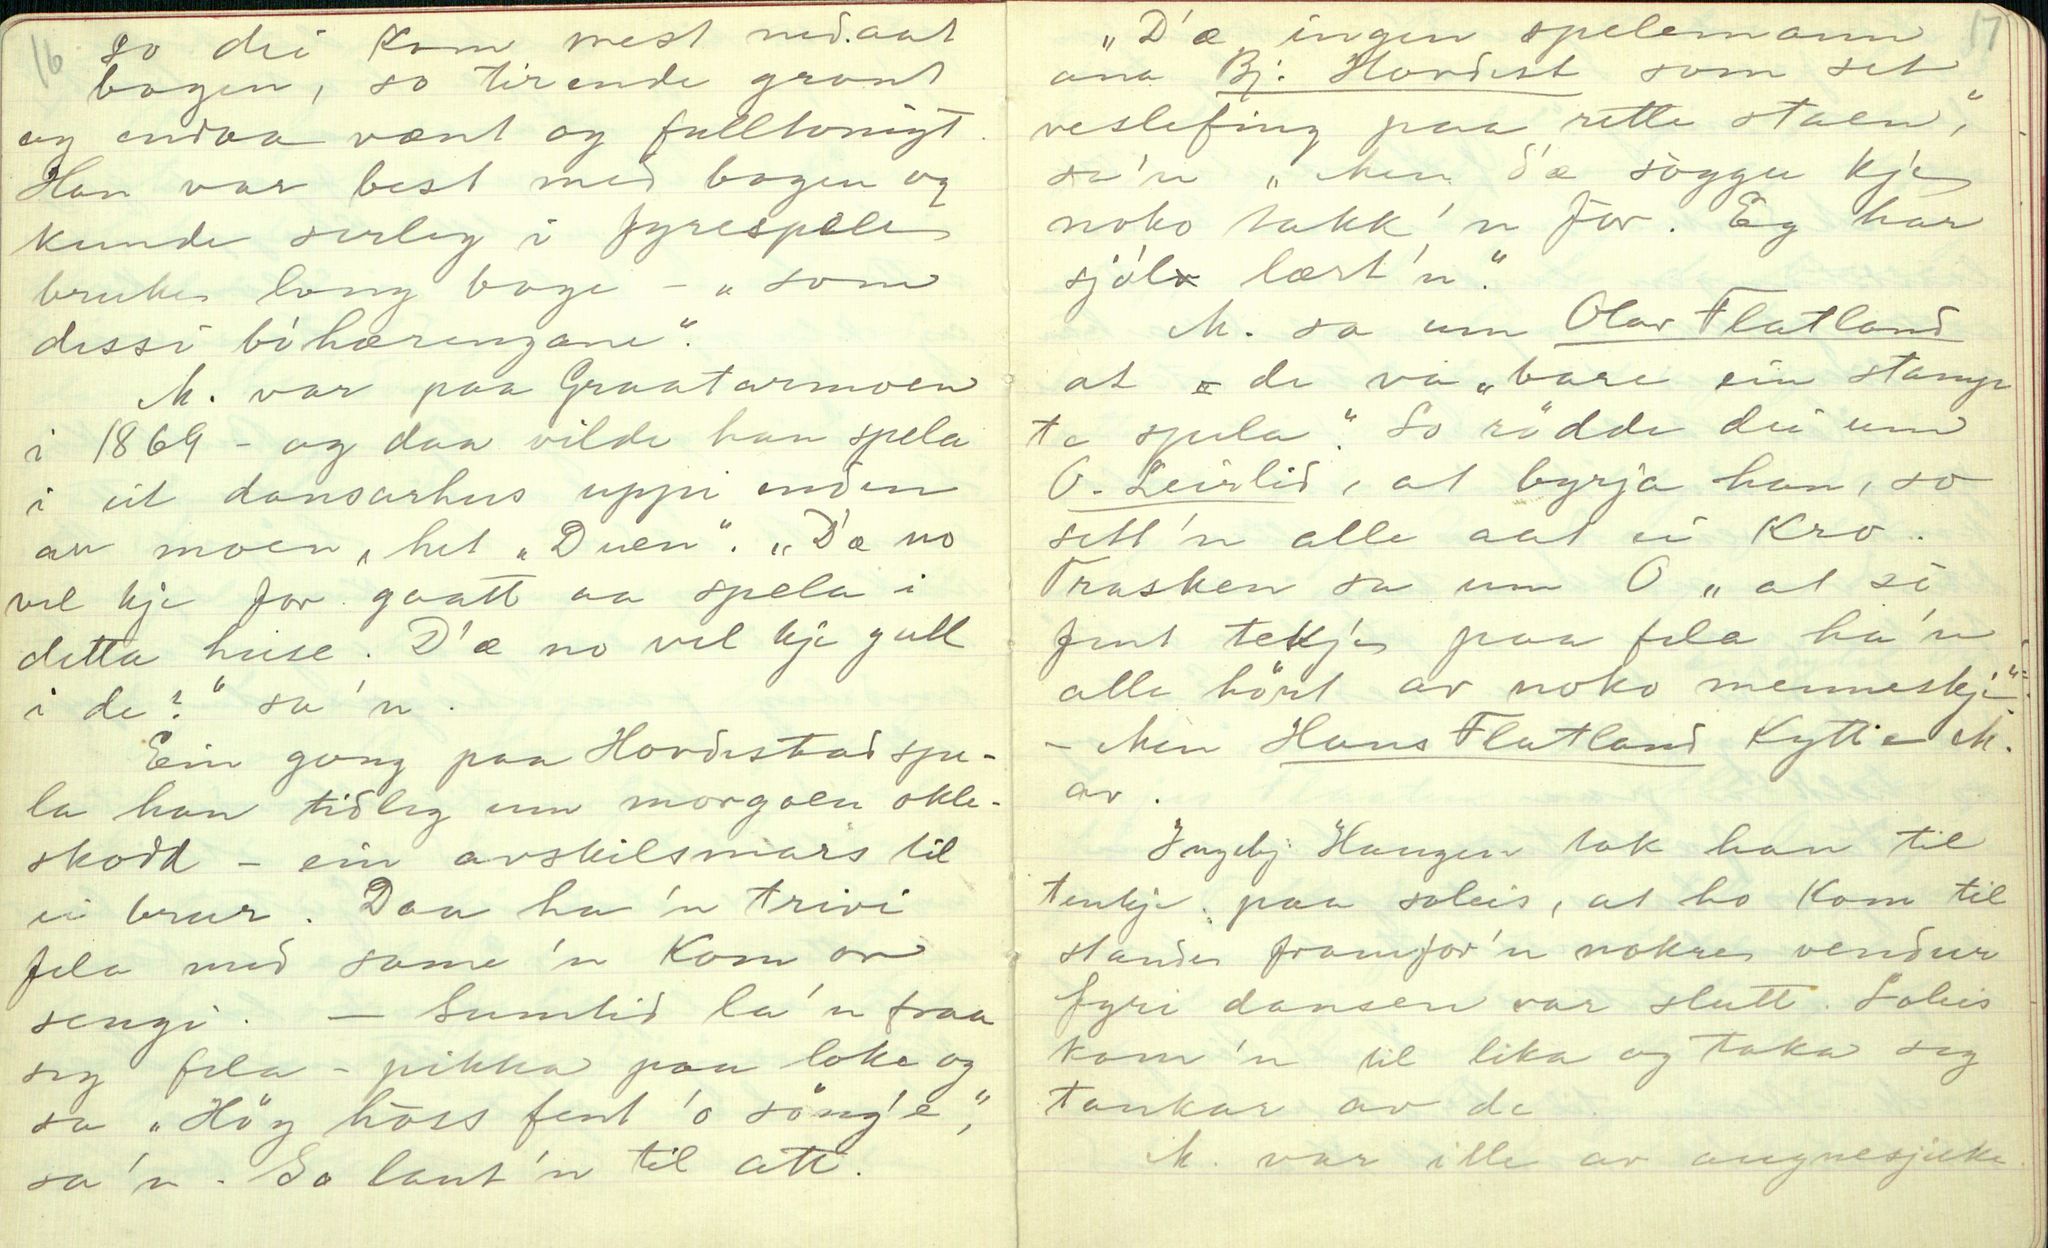 16
so dei kom mest nedaat
bogen, so tirande grant
og endaa vænt og fulltonigt.
Han var best med bogen og
kunde serleg i fyrespele
bruke long boge - „som
dessi böhæringane".
M. var paa Graatarmoen
i 1869 - og daa vilde han spela
i eit dansarhus uppi enden
av moen, het „Duen". „D'æ no
vel kje for gaatt aa spela i
detta huse. D'æ no vel kje gull
i de?" sa'n.
Ein gong paa Hovdestad spe-
la han tidleg um morgoen okle-
skodd - ein avskilsmars til
ei brur. Daa ha'n trivi
fela med same'n kom or
sengi. - Sumtid la'n fraa
seg fela - pikka paa loke og
sa „Höy høss fent 'o söng'e",
sa'n. So laut'n til att.
17
„D'æ ingen spelemann
ana Bj. Hovdest som set
veslefing paa rette staen",
sa'n „Men d'æ söggu kje
noko takk'n før. Eg har
sjöl lært'n".
M. sa um Olav Flatland
at de va „bare ein stamp
te spela". So rødde dei um
O. Leirlid, at byrja han, so
sett'n alle aat ei kro.
Trasken sa um O „at så
fent tekje paa fela ha'n
alle hört av noko menneskje"
- Men Hans Flatland kytte M.
av.
Ingebj Haugen tok han til
tenkje paa soleis, at ho kom til
standes framfor'n nokre vendur
fyri dansen var slutt. Soleis
kom'n til lika og taka seg
tankar av de
M. var ille av augnesjuke